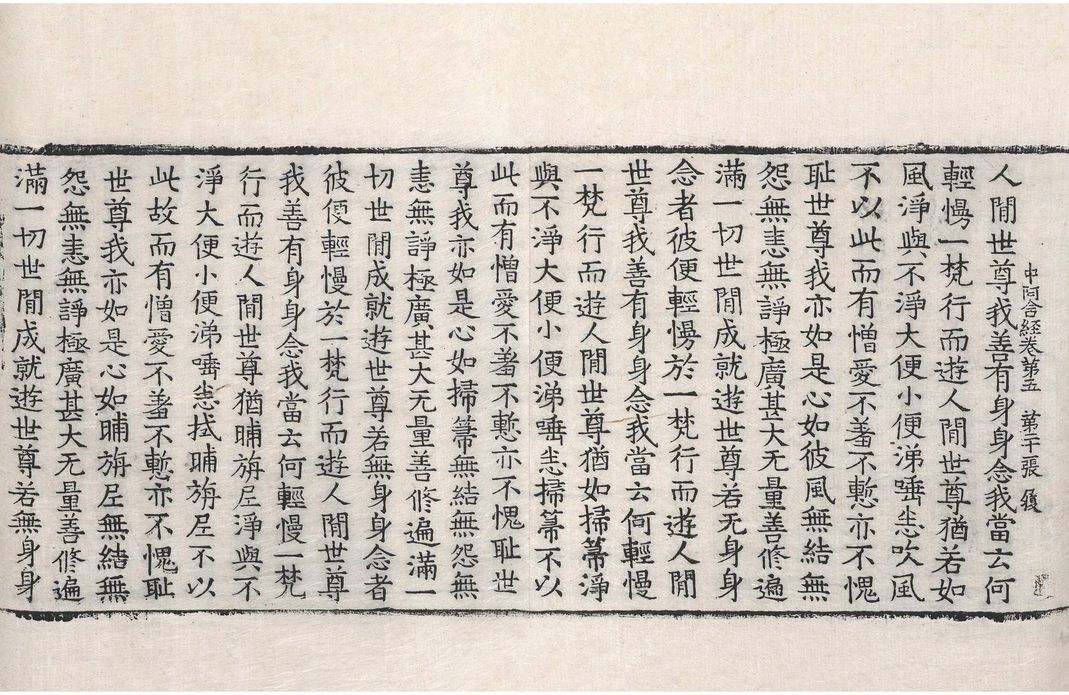 中阿含経卷第五　第二十張　㣪
人閒世尊我善有身身念我當云何
輕慢一梵行而遊人閒世尊猶若如
風淨與不淨大便小便涕唾悉吹風
不以此而有憎愛不羞不慙亦不愧
耻世尊我亦如是心如彼風無結無
怨無恚無諍極廣甚大无量善修遍
滿一切世閒成就遊世尊若无身身
念者彼便輕慢於一梵行而遊人閒
世尊我善有身身念我當云何輕慢
一梵行而遊人閒世尊猶如掃箒淨
與不淨大便小便涕唾悉掃箒不以
此而有憎愛不羞不慙亦不愧耻世
尊我亦如是心如掃箒無結無怨無
恚無諍極廣甚大无量善修遍滿一
切世閒成就遊世尊若無身身念者
彼便輕慢於一梵行而遊人閒世尊
我善有身身念我當云何輕慢一梵
行而遊人閒世尊猶晡旃尼淨與不
淨大便小便涕唾悉拭晡旃尼不以
此故而有憎愛不羞不慙亦不愧耻
世尊我亦如是心如晡旃尼無結無
怨無恚無諍極廣甚大无量善修遍
滿一切世閒成就遊世尊若無身身